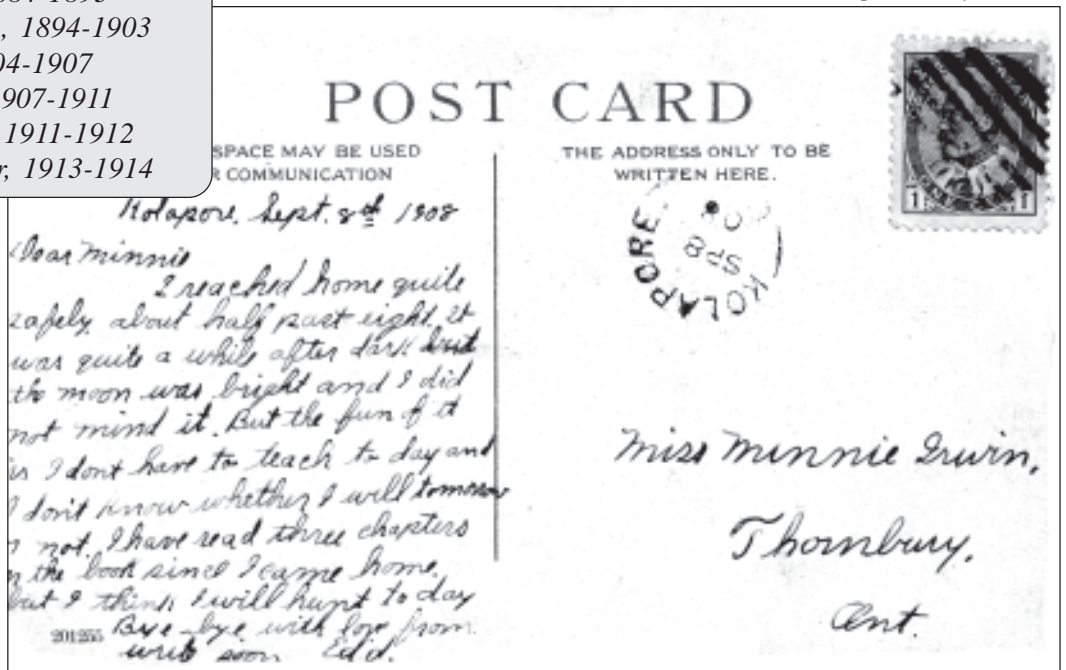 1894-1903
1907
1907-1911
1911-1912
1913-1914
POST CARD
SPACE MAY BE USED
COMMUNICATION
THE ADDRESS ONLY TO BE
WRITTEN HERE.
Kolapore, Sept. 8th 1908
Dear Minnie
I reached home quite
safely about half past eight. It
was quite a while after dark but
the moon was bright and I did
not mind it. But the fun of it
is I dont have to teach to day and
I don't know whether I will tomorrow
or not. I have read three chapters
in the book since I came home.
but I think I will hunt to day
201255 Bye-bye with love from
write soon
KOLAPORE
SP 8
08
1 1
Miss Minnie Irwin,
Thornbury,
Ont.